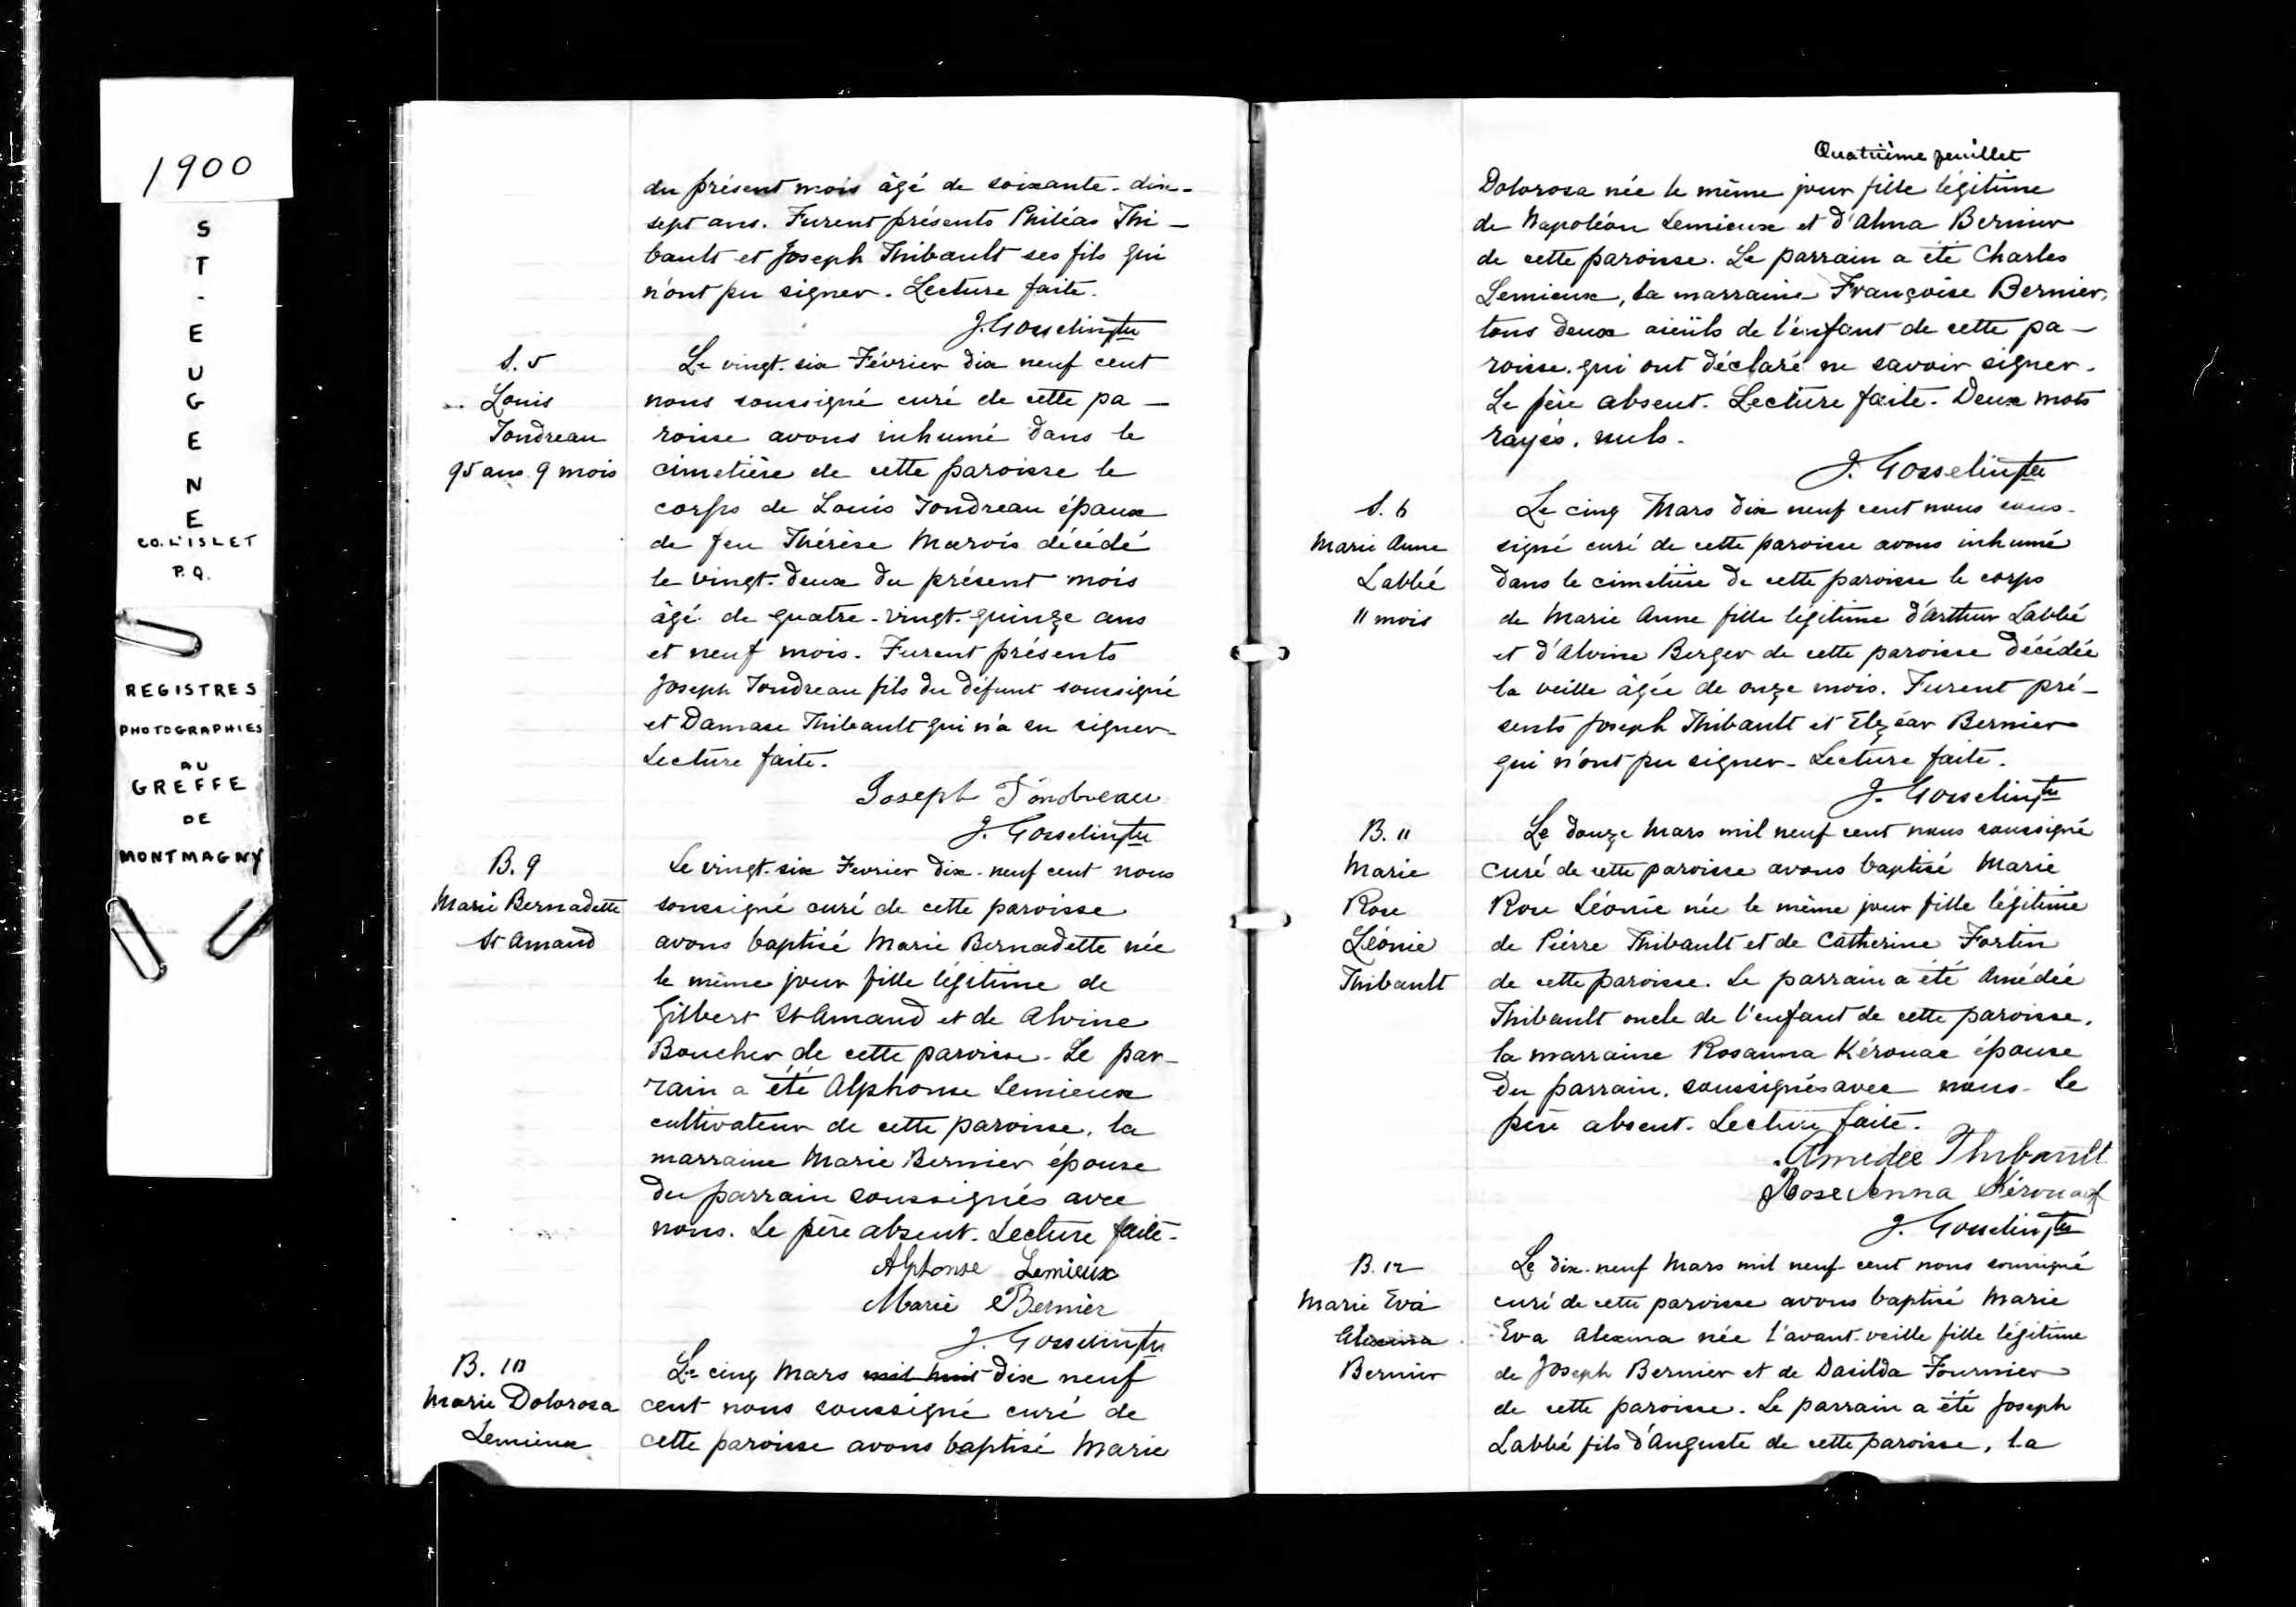 1900
ST-EUGENE
CO. L'ISLET
P.Q.
REGISTRES
PHOTOGRAPHIES
AU
GREFFE
DE
MONTMAGNY
du présent mois âgé de soixante-dix-
sept ans. Furent présents Philéas Thi-
bault et Joseph Thibault ses fils qui
n'ont pu signer. Lecture faite.
J. Gosselin ptre
S. 5
Louis
Tondreau
95 ans 9 mois
Le vingt-six Février dix neuf cent
nous soussigné curé de cette pa-
roisse avons inhumé dans le
cimetière de cette paroisse le
corps de Louis Tondreau époux
de feu Thérèse Marois décédé
le vingt-deux du présent mois
âgé de quatre-vingt-quinze ans
et neuf mois. Furent présents
Joseph Tondreau fils du défunt soussigné
et Damase Thibault qui n'a su signer.
Lecture faite.
Joseph Tondreau
J. Gosselin ptre
B. 9
Marie Bernadette
St Amand
Le vingt-six Fevrier dix-neuf cent nous
soussigné curé de cette paroisse
avons baptisé Marie Bernadette née
le même jour fille légitime de
Gilbert St Amand et de Alvine
Boucher de cette paroisse. Le par-
rain a été Alphonse Lemieux
cultivateur de cette paroisse, la
marraine Marie Bernier épouse
du parrain soussignés avec
nous. Le père absent. Lecture faite.
Alphonse Lemieux
Marie Bernier
J. Gosselin ptre
B. 10
Marie Dolorosa
Lemieux
Le cinq Mars mil huit dix neuf
cent nous soussigné curé de
cette paroisse avons baptisé Marie
Quatrième feuillet
Dolorosa née le même jour fille légitime
de Napoléon Lemieux et d'Alma Bernier
de cette paroisse. Le parrain a été Charles
Lemieux, la marraine Françoise Bernier,
tous deux aieüls de l'enfant de cette pa-
roisse qui ont déclaré ne savoir signer.
Le père absent. Lecture faite. Deux mots
rayés. nuls.
J. Gosselin ptre
S. 6
Marie Anne
Labbé
11 mois
Le cinq Mars dix neuf cent nous sous-
signé curé de cette paroisse avons inhumé
dans le cimetière de cette paroisse le corps
de Marie Anne fille légitime d'Arthur Labbé
et d'Alvine Berger de cette paroisse décédée
la veille âgée de onze mois. Furent pré-
sents Joseph Thibault et Elzéar Bernier
qui n'ont pu signer. Lecture faite.
J. Gosselin ptre
B. 11
Marie
Rose
Léonie
Thibault
Le douze Mars mil neuf cent nous soussigné
curé de cette paroisse avons baptisé Marie
Rose Léonie née le même jour fille légitime
de Pierre Thibault et de Catherine Fortin
de cette paroisse. Le parrain a été Amédée
Thibault oncle de l'enfant de cette paroisse,
la marraine Rosanna Kérouac épouse
du parrain, soussignés avec nous. Le
père absent. Lecture faite.
Amedee Thibault
RoseAnna Kérouack
J. Gosselin ptre
B. 12
Marie Eva
Alexina
Bernier
Le dix-neuf Mars mil neuf cent nous soussigné
curé de cette paroisse avons baptisé Marie
Eva Alexina née l'avant-veille fille légitime
de Joseph Bernier et de Dasilda Fournier
de cette paroisse. Le parrain a été Joseph
Labbé fils d'Auguste de cette paroisse, la